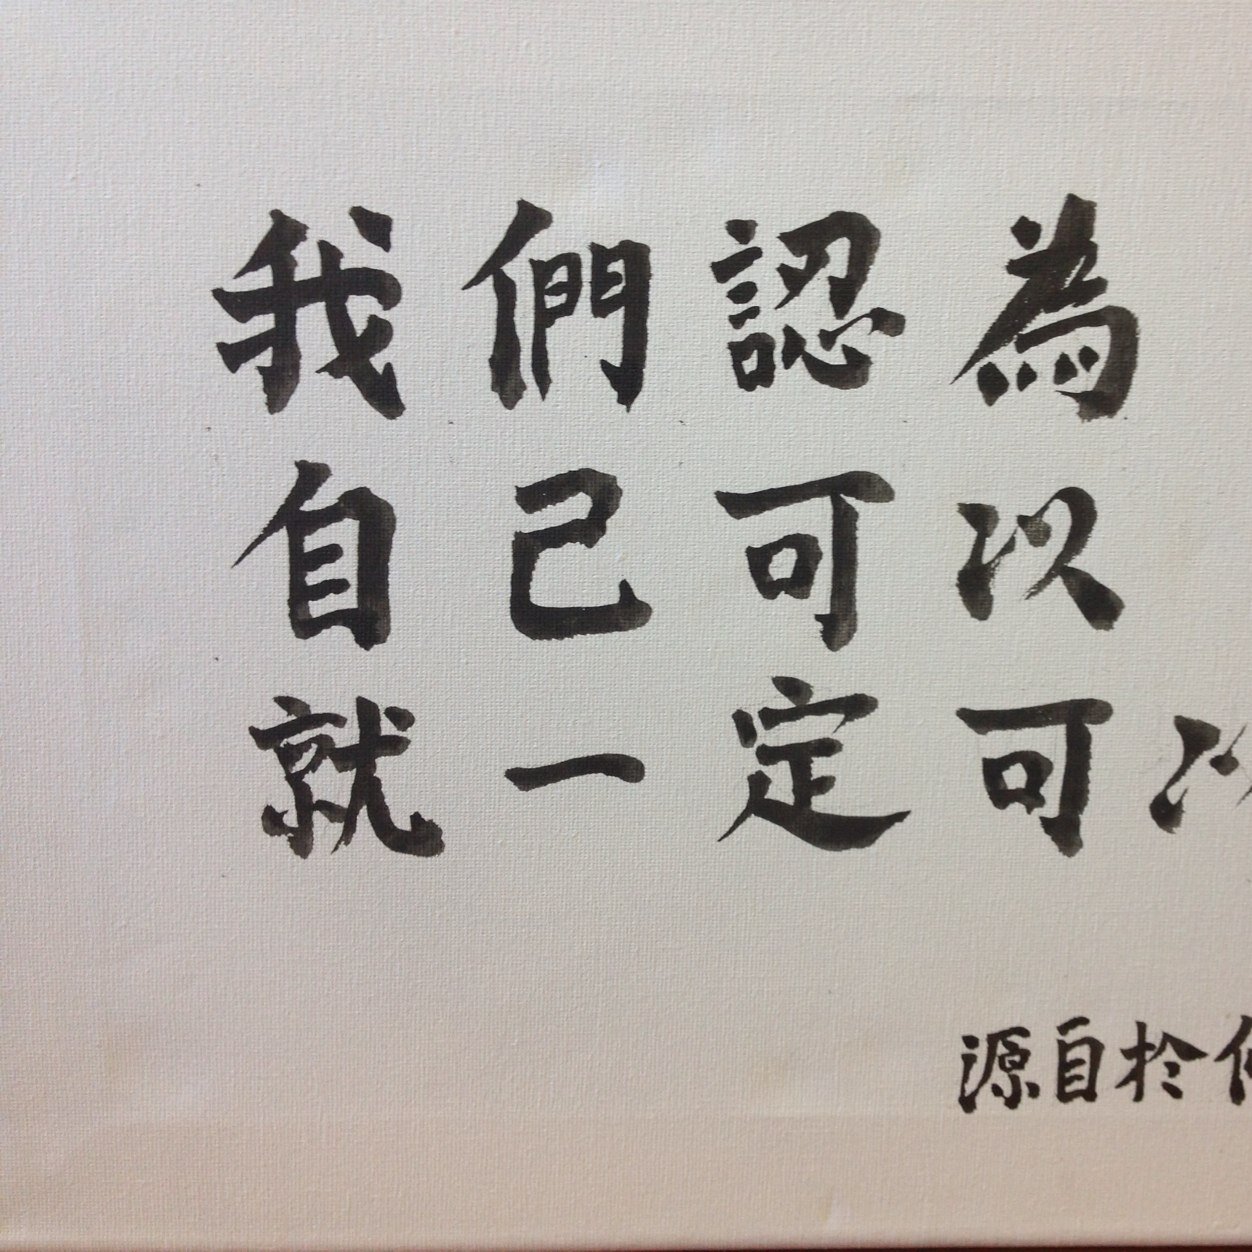 我們認為
自己可以
就一定可以
源自於